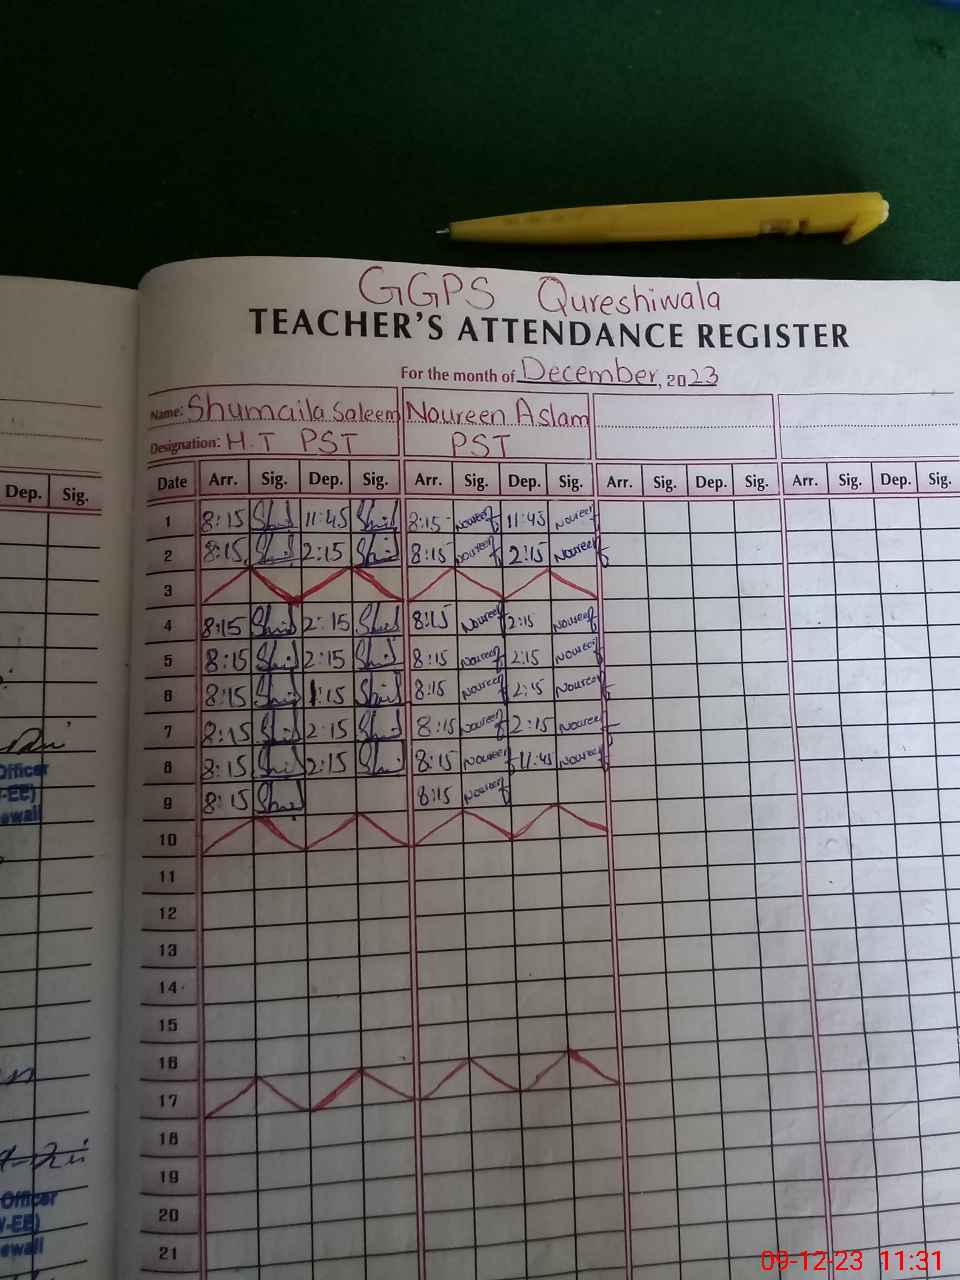 GGPS Qureshiwala
TEACHER'S ATTENDANCE REGISTER
For the month of December, 2023
Name: Shumaila Saleem Noureen Aslam
Designation: H.T PST PST
Date Arr. Sig. Dep. Sig. Arr. Sig. Dep. Sig. Arr. Sig. Dep. Sig. Arr. Sig. Dep. Sig.
Dep. Sig.
1 8:15 11:45 8:15 Noureen 11:45 Noureen
2 8:15 2:15 8:15 Noureen 2:15 Noureen
3
4 8:15 2:15 8:15 Noureen 2:15 Noureen
5 8:15 2:15 8:15 Noureen 2:15 Noureen
6 8:15 1:15 8:15 Noureen 2:15 Noureen
7 8:15 2:15 8:15 Noureen 2:15 Noureen
8 8:15 2:15 8:15 Noureen 11:45 Noureen
9 8:15 8:15 Noureen
10
11
12
13
14
15
16
17
18
19
20
21
Officer
-EE)
ewali
Officer
-EE)
ewali
09-12-23 11:31